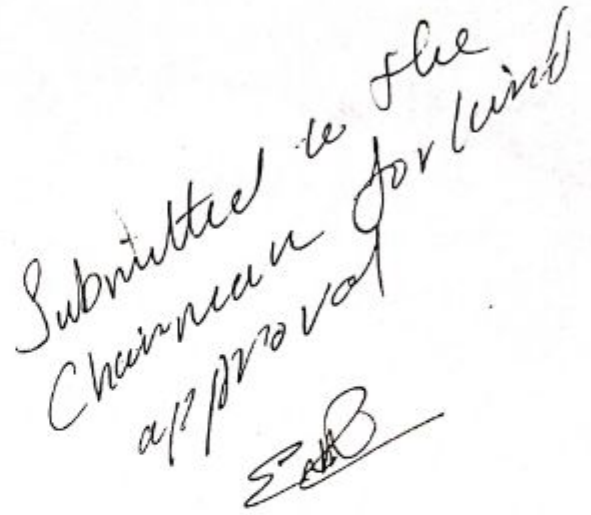 Submitted to the
Chairman for kind
approval